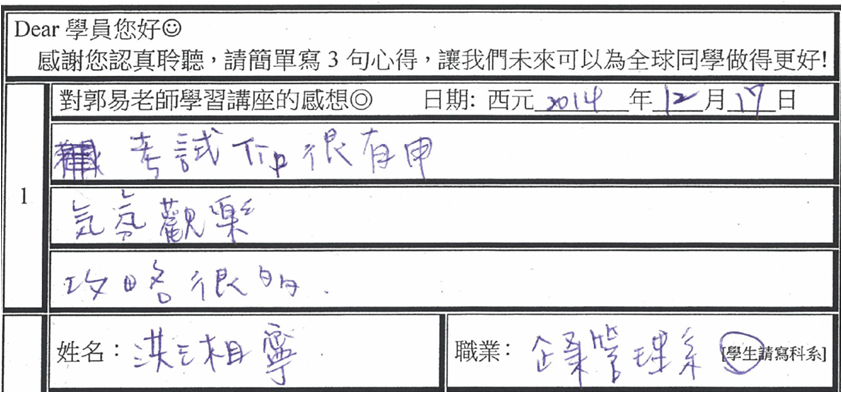 Dear 學員您好☺
感謝您認真聆聽，請簡單寫 3 句心得，讓我們未來可以為全球同學做得更好!
1
對郭易老師學習講座的感想◎ 日期: 西元 2014 年 12 月 17 日
考試 很有用
気氛觀樂
攻略很
姓名： 洪 相寧 職業： 企業管理系 [學生請寫科系]